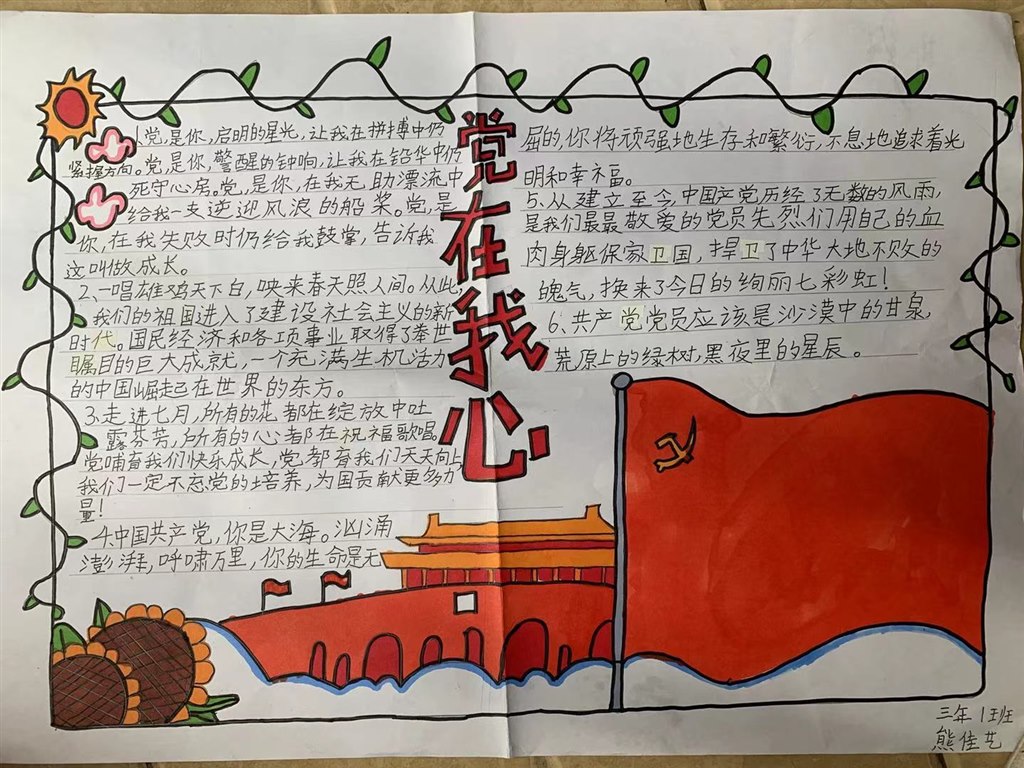 党在我心
1、党,是你,启明的星光,让我在拼搏中仍
紧握方向。党,是你,警醒的钟响,让我在铅华中仍
死守心房。党,是你,在我无助漂流中
给我一支逆迎风浪的船桨。党,是
你,在我失败时仍给我鼓掌,告诉我
这叫做成长。
2、一唱雄鸡天下白,唤来春天照人间。从此,
我们的祖国进入了建设社会主义的新
时代。国民经济和各项事业取得了举世
瞩目的巨大成就,一个充满生机活力
的中国崛起在世界的东方。
3、走进七月,所有的花都在绽放中吐
露芬芳,所有的心都在祝福歌唱。
党哺育我们快乐成长,党教育我们天天向上,
我们一定不忘党的培养,为国贡献更多力
量!
4、中国共产党,你是大海。汹涌
澎湃,呼啸万里,你的生命是无
屈的,你将顽强地生存和繁衍,不息地追求着光
明和幸福。
5、从建立至今,中国产党历经了无数的风雨,
是我们最最敬爱的党员先烈们用自己的血
肉身躯保家卫国,捍卫了中华大地不败的
魄气,换来了今日的绚丽七彩虹!
6、共产党党员应该是沙漠中的甘泉,
荒原上的绿树,黑夜里的星辰。
三年1班
熊佳艺